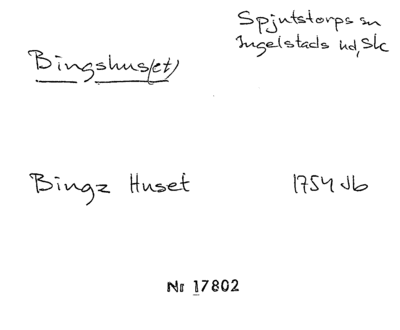 Spjutstorps sn
Ingelstads hd, Sk
Bingshus(et)
Bingz Huset 1754 Jb
Nr 17802